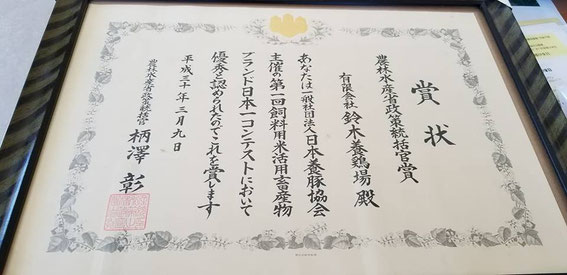 賞状
農林水産省政策統括官賞
有限会社 鈴木養鶏場 殿
あなたは一般社団法人日本養豚協会
主催の第一回飼料用米活用畜産物
ブランド日本一コンテストにおいて
優秀と認められたのでこれを賞します
平成三十年三月九日
農林水産省政策統括官 柄澤 彰